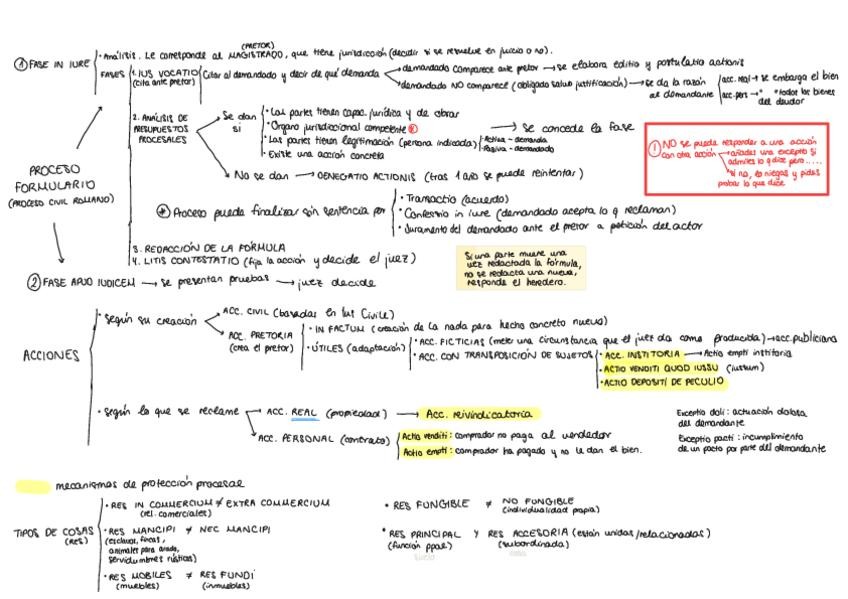 (PRETOR)
① FASE IN IURE
· Análisis. Le corresponde al MAGISTRADO, que tiene jurisdicción (decidir si se resuelve en juicio o no).
FASES
1. IUS VOCATIO
(cita ante pretor)
Citar al demandado y decir de qué demanda
demandado comparece ante pretor → se elabora editio y postulatio actionis
demandado NO comparece (obligado salvo justificación) → se da la razón
al demandante
acc. real → se embarga el bien
acc. pers → " " todos los bienes
del deudor
2. ANÁLISIS DE
PRESUPUESTOS
PROCESALES
Se dan
sí
· Las partes tienen capac. jurídica y de obrar
· Órgano jurisdiccional competente
· Las partes tienen legitimación (persona indicada)
Activa - demanda
Pasiva - demandado
· Existe una acción concreta
→ Se concede la fase
No se dan → DENEGATIO ACTIONIS (tras 1 año se puede reintentar)
! NO se puede responder a una acción
con otra acción
añades una exceptio si
admites lo q dice pero.....
si no, lo niegas y pides
probar lo que dice
PROCESO
FORMULARIO
(PROCESO CIVIL ROMANO)
Proceso puede finalizar sin sentencia por
· Transactio (acuerdo)
· Confessio in iure (demandado acepta lo q reclaman)
· Juramento del demandado ante el pretor a petición del actor
3. REDACCIÓN DE LA FÓRMULA
4. LITIS CONTESTATIO (fija la acción y decide el juez)
Si una parte muere una
vez redactada la fórmula,
no se redacta una nueva,
responde el heredero.
② FASE APUD IUDICEM → se presentan pruebas → juez decide
ACCIONES
· según su creación
ACC. CIVIL (basadas en Ius Civile)
ACC. PRETORIA
(crea el pretor)
· IN FACTUM (creación de la nada para hecho concreto nuevo)
· ÚTILES (adaptación)
· ACC. FICTICIAS (meter una circunstancia que el juez da como producida) → acc. publiciana
· ACC. CON TRANSPOSICIÓN DE SUJETOS
· ACC. INSTITORIA → Actio empti institoria
· ACTIO VENDITI QUOD IUSSU (iussum)
· ACTIO DEPOSITI DE PECULIO
· según lo que se reclame
ACC. REAL (propiedad) → Acc. reivindicatoria
ACC. PERSONAL (contrato)
Actio venditi: comprador no paga al vendedor
Actio empti: comprador ha pagado y no le dan el bien.
Exceptio doli: actuación dolosa
del demandante
Exceptio pacti: incumplimiento
de un pacto por parte del demandante
mecanismos de protección procesal
TIPOS DE COSAS
(RES)
· RES IN COMMERCIUM ≠ EXTRA COMMERCIUM
(rel. comerciales)
· RES MANCIPI ≠ NEC MANCIPI
(esclavos, fincas,
animales para arado,
servidumbres rústicas)
· RES MOBILES ≠ RES FUNDI
(muebles) (inmuebles)
· RES FUNGIBLE ≠ NO FUNGIBLE
(individualidad propia)
· RES PRINCIPAL Y RES ACCESORIA (están unidas/relacionadas)
(función ppal) (subordinada)